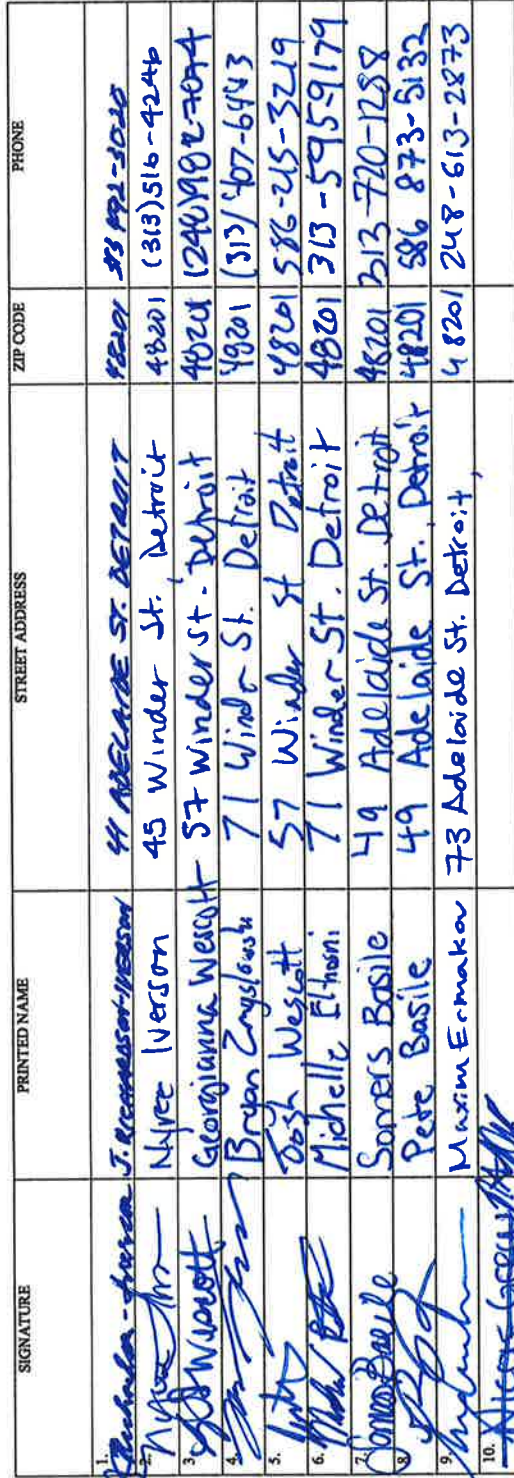 SIGNATURE PRINTED NAME STREET ADDRESS ZIP CODE PHONE
1. J. RICHARDSON-IVERSON 41 ADELAIDE ST. DETROIT 48201 313 892-3020
2. Nyree Iverson 45 Winder St. Detroit 48201 (313)516-4246
3. Georgianna Wescott 57 Winder St. Detroit 48201 (248)982-7074
4. Bryan 71 Winder St. Detroit 48201 (313)407-6443
5. Josh Wescott 57 Winder St Detroit 48201 586-215-3219
6. Michelle Elhosni 71 Winder St. Detroit 48201 313-595-9179
7. Somers Basile 49 Adelaide St. Detroit 48201 313-720-1288
8. Pete Basile 49 Adelaide St. Detroit 48201 586 873-5132
9. Maxim Ermakov 73 Adelaide St. Detroit, 48201 248-613-2873
10.